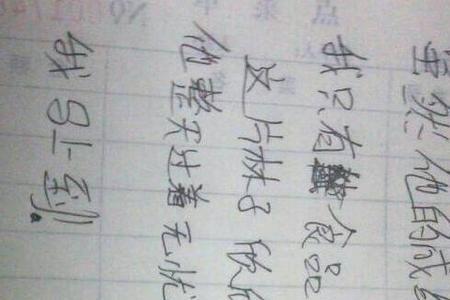 虽然他的成
我只有食品
这片林子欣
他整天过着无忧
我马上到!